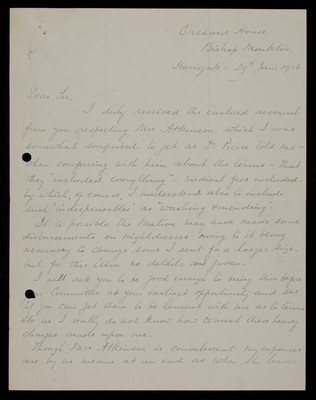 Orchard House,
Bishop Monkton
Harrogate - 29th Jany 1916
Dear Sir,
I duly received the enclosed account
from you respecting Mrs Atkinson, which I was
somewhat surprised to get as Dr Pierce told me -
when conferring with him about the terms - that
they "included everything" - medical fees included
by which, of course, I understood also to include
such "indispensables" as "washing & mending".
It is possible the Matron may have made some
disbursements on nightdresses owing to it being
necessary to change some I sent for a larger size,
but for this item no details are given.
I will ask you to be good enough to bring this before
Committee at your earliest opportunity and see
if you can get them to be lenient with me as to terms
as I really do not know how to meet these heavy
charges made upon me.
Though Mrs Atkinson is convalescent my expenses
are by no means at an end as when she leaves